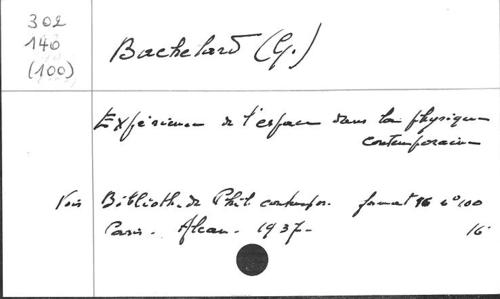 302
140
(100)
Bachelard (G.)
Expérience de l'espace dans la physique
contemporaine
Voir Biblioth. de Phil contempor. format 16 n° 100
Paris - Alcan - 1937 - 16°